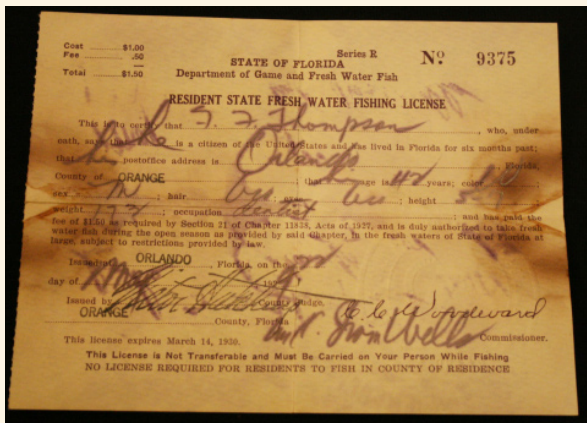 Cost ..... $1.00
Fee ..... .50
Total ..... $1.50
Series R
No. 9375
STATE OF FLORIDA
Department of Game and Fresh Water Fish
RESIDENT STATE FRESH WATER FISHING LICENSE
This is to certify that F. F. Thompson, who, under
oath, says that he is a citizen of the United States and has lived in Florida for six months past;
that his postoffice address is Orlando, Florida,
County of ORANGE; that age is 42 years; color
sex M; hair; eyes; height
weight; occupation Dentist; and has paid the
fee of $1.50 as required by Section 21 of Chapter 11838, Acts of 1927, and is duly authorized to take fresh
water fish during the open season as provided by said Chapter, in the fresh waters of State of Florida at
large, subject to restrictions provided by law.
Issued at ORLANDO, Florida, on the
day of
Issued by County Judge.
ORANGE County, Florida
Commissioner.
This license expires March 14, 1930.
This License is Not Transferable and Must Be Carried on Your Person While Fishing
NO LICENSE REQUIRED FOR RESIDENTS TO FISH IN COUNTY OF RESIDENCE